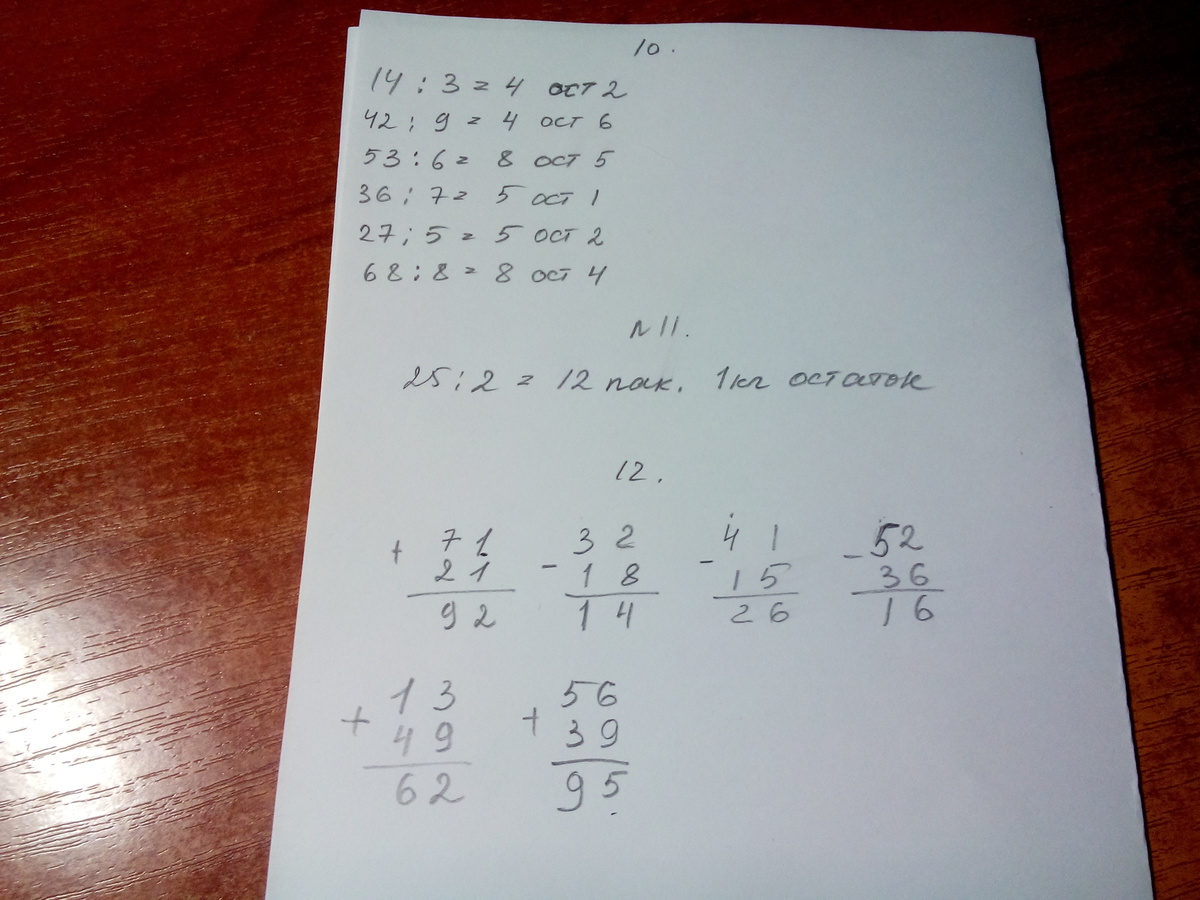 10.
14 : 3 = 4 ост 2
42 : 9 = 4 ост 6
53 : 6 = 8 ост 5
36 : 7 = 5 ост 1
27 : 5 = 5 ост 2
68 : 8 = 8 ост 4
N 11.
25 : 2 = 12 пак. 1кг остаток
12.
+ 71 - 32 - 41 - 52
21 18 15 36
92 14 26 16
+ 13 + 56
49 39
62 95.